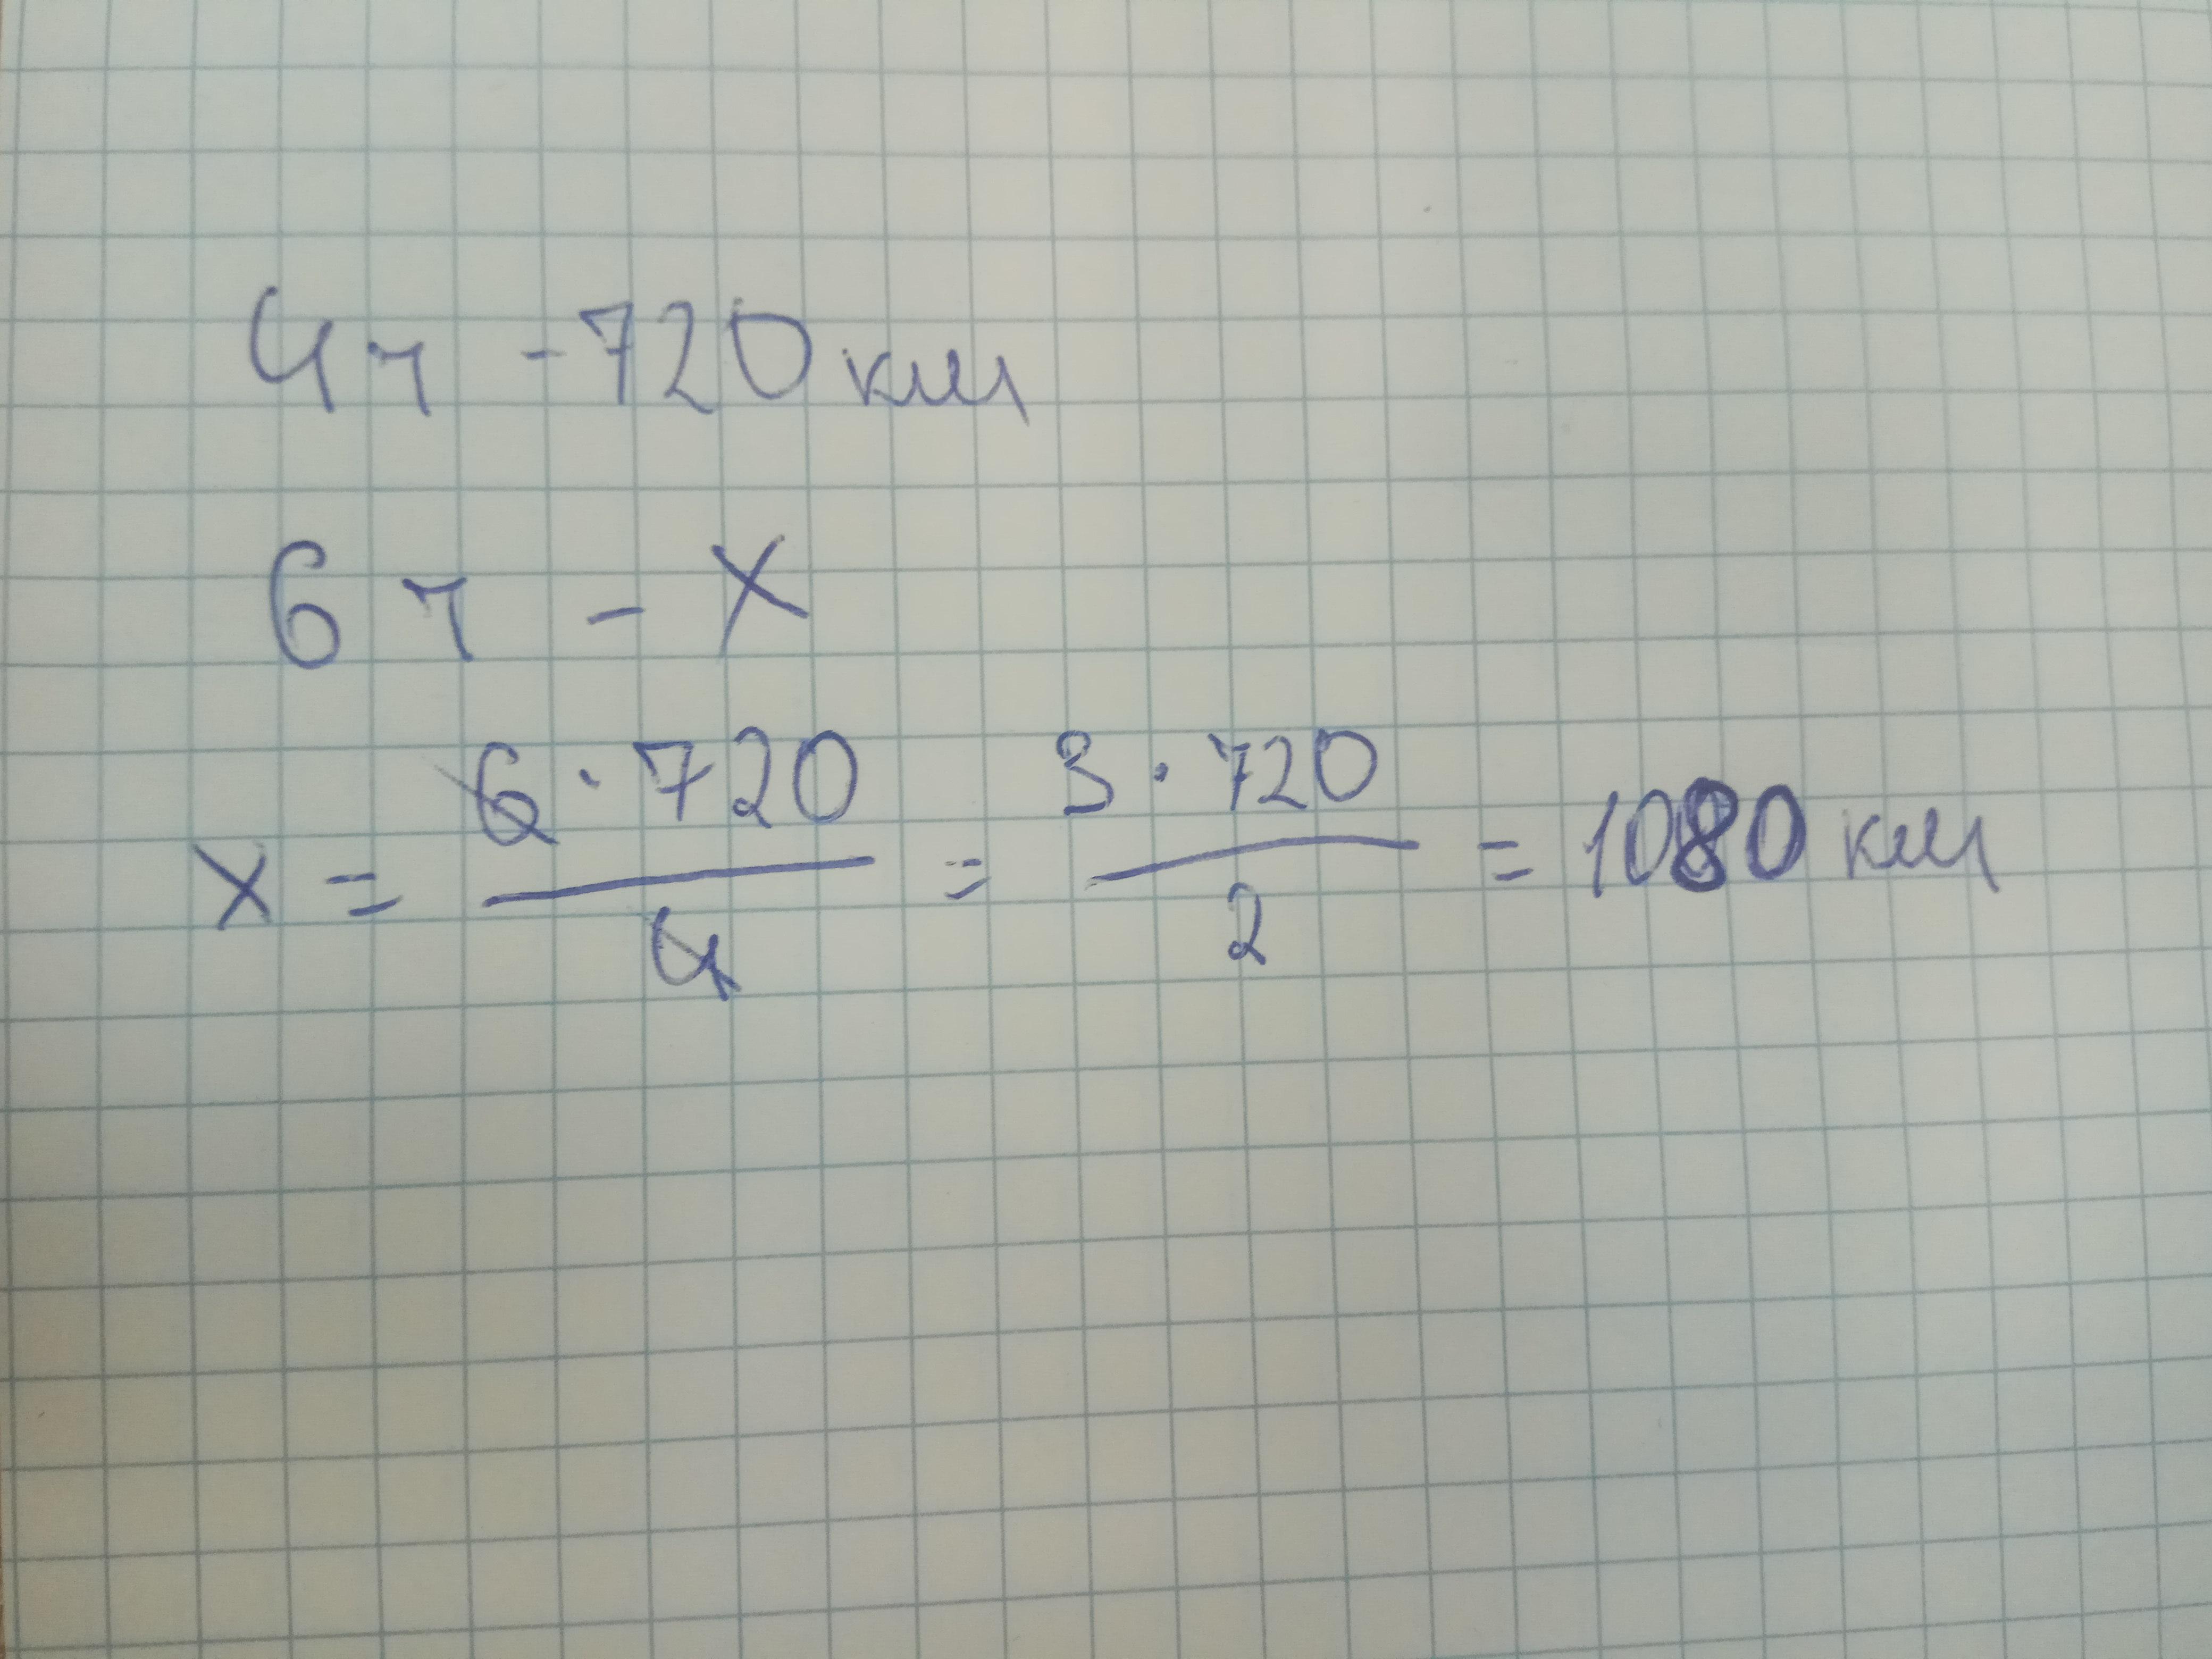 4ч - 720 км
6 ч - х
х = 6 · 720 / 4 = 3 · 720 / 2 = 1080 км